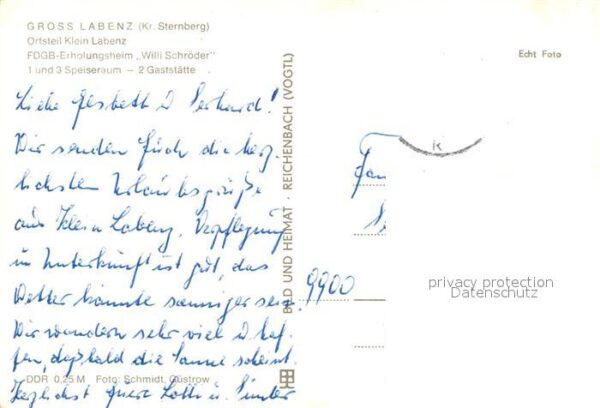 GROSS LABENZ (Kr. Sternberg)
Ortsteil Klein Labenz
FDGB-Erholungsheim „Willi Schröder"
1 und 3 Speiseraum — 2 Gaststätte
Echt Foto
Liebe Elsbeth u. Gerhard!
Wir senden Euch die herz-
lichsten Urlaubsgrüße
aus Klein Labenz. Verpflegung
u. Unterkunft ist gut, das
Wetter könnte sonniger sein.
Wir wandern sehr viel u. hof-
fen, daß bald die Sonne scheint.
Herzlichst Eure Lotti u. Günter
BILD UND HEIMAT · REICHENBACH (VOGTL)
Fam
9900
privacy protection
Datenschutz
DDR 0,25 M Foto: Schmidt, Güstrow